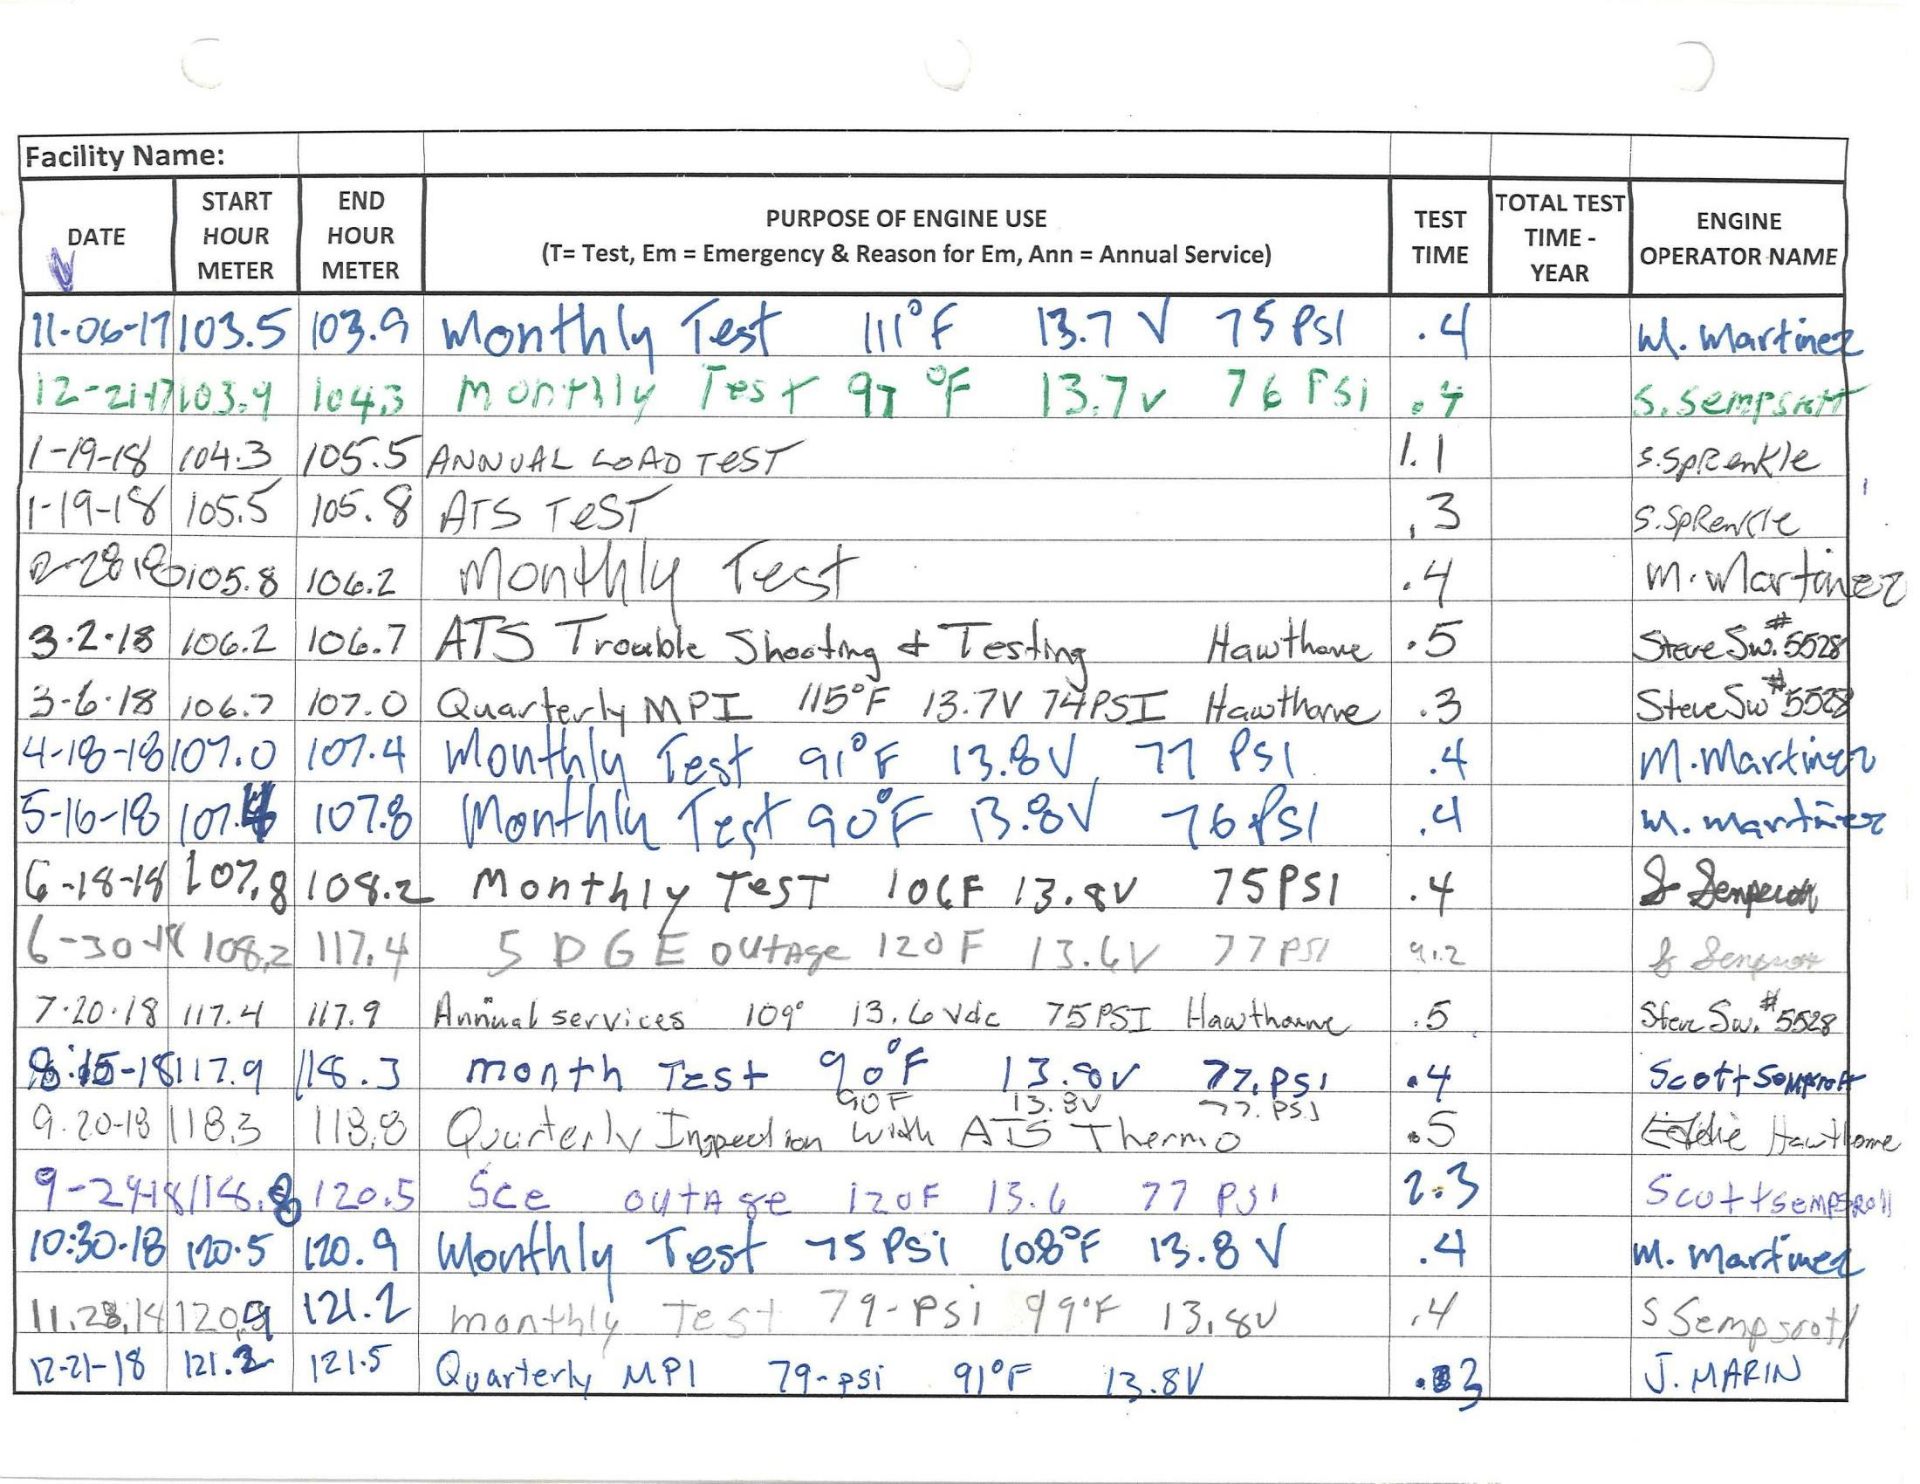 Facility Name:
DATE START HOUR METER END HOUR METER PURPOSE OF ENGINE USE (T= Test, Em = Emergency & Reason for Em, Ann = Annual Service) TEST TIME TOTAL TEST TIME - YEAR ENGINE OPERATOR NAME
11-06-17 103.5 103.9 Monthly Test 111°F 13.7 V 75 PSI .4 M. Martinez
12-21-17 103.9 104.3 Monthly Test 97 °F 13.7v 76 PSi .4 S. Sempsrott
1-19-18 104.3 105.5 ANNUAL LOAD TEST 1.1 S. SpRenkle
1-19-18 105.5 105.8 ATS TEST .3 S. SpRenkle
2-28-18 105.8 106.2 Monthly Test .4 M. Martinez
3.2.18 106.2 106.7 ATS Trouble Shooting & Testing Hawthorne .5 Steve Sw. #5528
3-6-18 106.7 107.0 Quarterly MPI 115°F 13.7V 74PSI Hawthorne .3 Steve Sw #5528
4-18-18 107.0 107.4 Monthly Test 91°F 13.8V 77 PSI .4 M. Martinez
5-16-18 107.4 107.8 Monthly Test 90°F 13.8V 76 PSI .4 M. Martinez
6-18-18 107.8 108.2 Monthly TEST 106F 13.8V 75PSI .4 S Sempsrott
6-30-18 108.2 117.4 SDGE outAge 120F 13.6V 77 PSI 9.2 S Sempsrott
7.20.18 117.4 117.9 Annual services 109° 13.6 Vdc 75PSI Hawthorne .5 Steve Sw. #5528
8-15-18 117.9 118.3 month Test 90°F 13.8v 77. PSI .4 Scott Sempsrott
90F 13.8V 77. PSI
9.20-18 118.3 118.8 Quarterly Inspection with ATS Thermo .5 Eddie Hawthorne
9-24-18 118.8 120.5 Sce outAge 120F 13.6 77 PSI 2.3 Scott sempsroll
10:30-18 120.5 120.9 Monthly Test 75 PSi 108°F 13.8 V .4 M. Martinez
11.28.18 120.9 121.2 monthly Test 79-PSi 99°F 13.8V .4 S Sempsrott
12-21-18 121.2 121.5 Quarterly MPI 79-psi 91°F 13.8V .3 J. MARIN